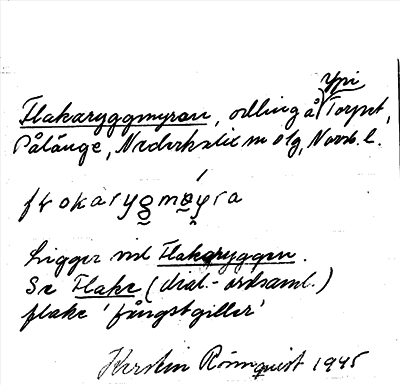 ypi
Flakaryggmyran, odling å Torpet,
Pålänge, Nederkalix sn o lg, Norrb. l.
flokarygmøyra
Ligger vid Flakaryggen.
Se Flake (dial.-ordsaml.)
flake 'fångstgiller'
Kerstin Rönnquist 1945